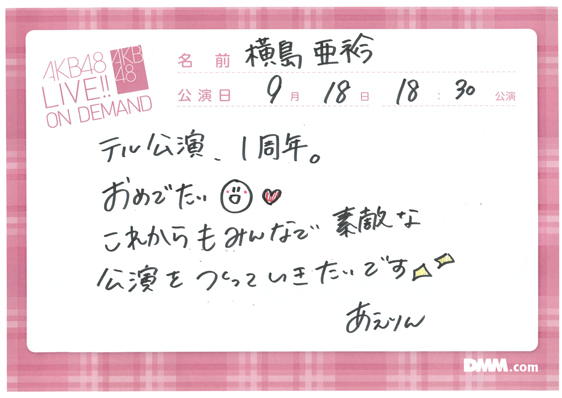 AKB48
LIVE!!
ON DEMAND
AKB
48
名前 横島亜衿
公演日 9月 18日 18:30 公演
テル公演、1周年。
おめでたい
これからもみんなで素敵な
公演をつくっていきたいです
あえりん
DMM.com